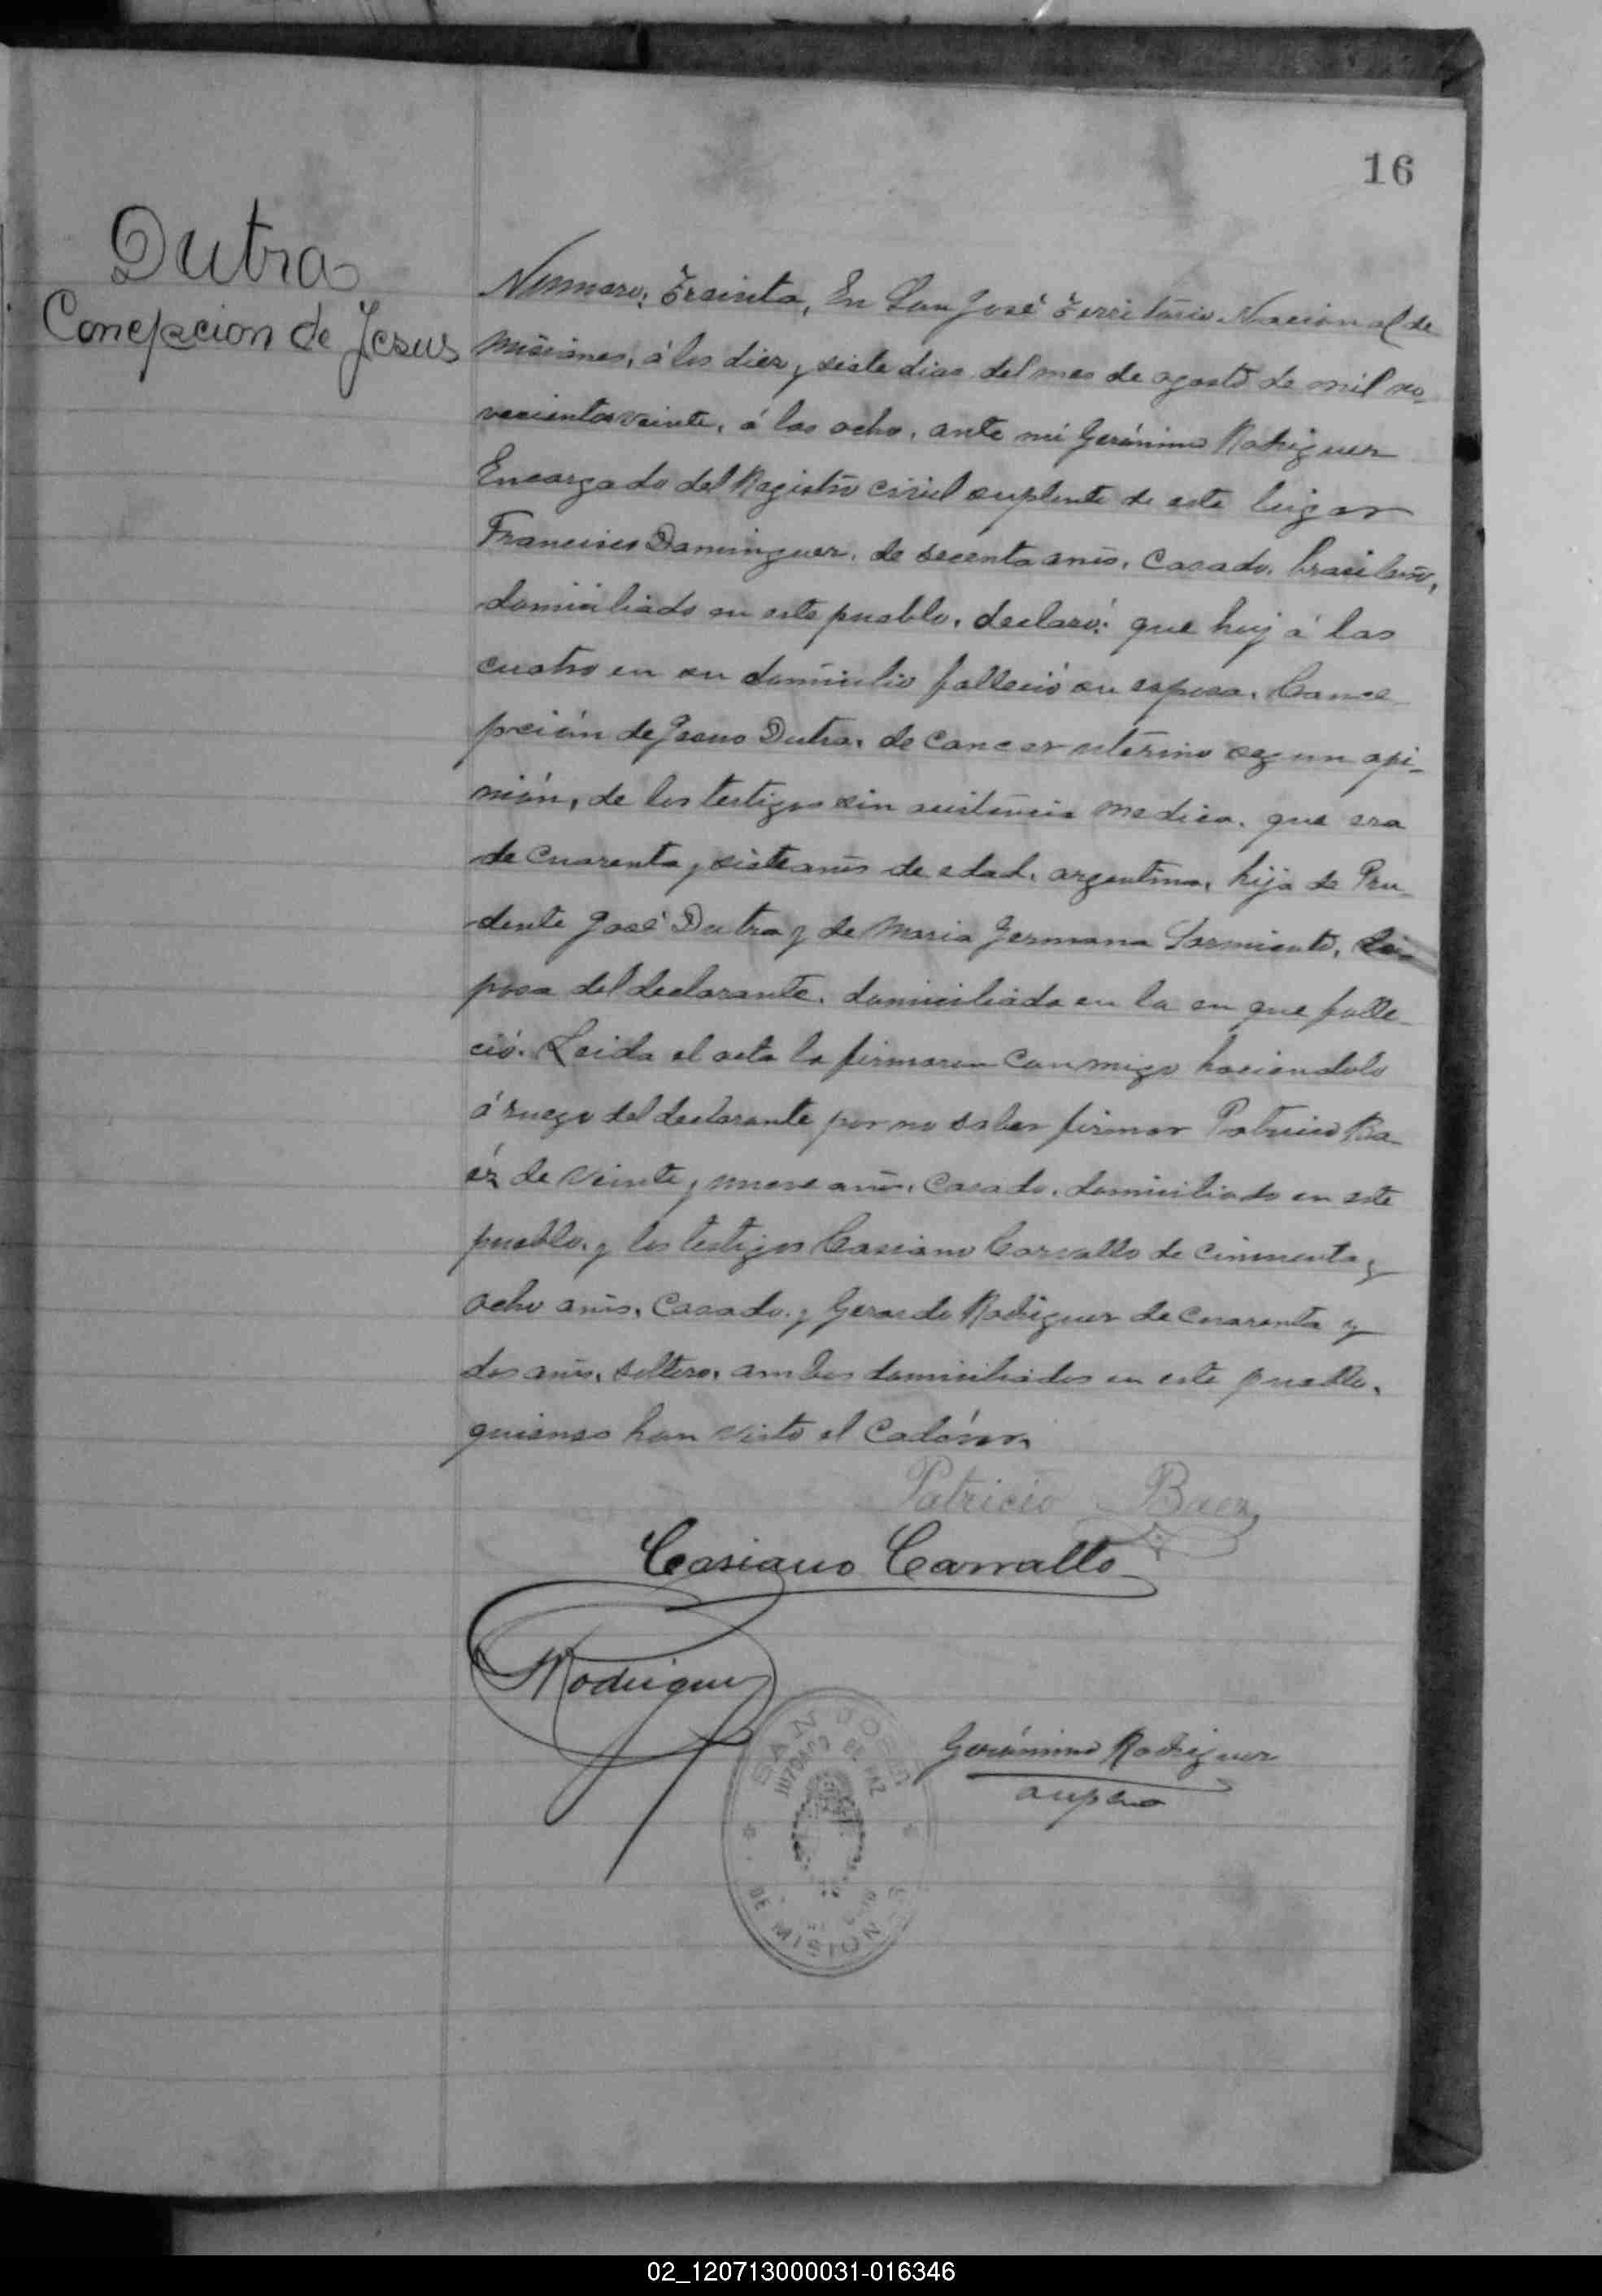 16
Dutra
Concepcion de Jesus
Nummero, Treinta, En San José Territorio Nacional de
Misiones, á los diez y siete dias del mes de agosto de mil no-
vecientos veinte, á las ocho, ante mi Gerónimo Rodriguez
Encargado del Registro civil suplente de este lugar
Francisco Dominguez, de secenta años, casado, brasilero,
domiciliado en este pueblo, declaró: que hoy á las
cuatro en su domicilio falleció su esposa, Conce
pción de Jesus Dutra, de cancer uterino segun opi-
nión, de los testigos sin asistencia medica, que era
de cuarenta y siete años de edad, argentina, hija de Pru
dente José Dutra y de Maria Germana Sarmiento,
posa del declarante, domiciliada en la en que falle-
ció. Leida el acta la firmaron conmigo haciendolo
á ruego del declarante por no saber firmar Patricio Ba-
éz de veinte y nueve años, casado, domiciliado en este
pueblo, y los testigos Casiano Carvallo de cincuenta y
ocho años, casado, y Gerardo Rodriguez de cuarenta y
dos años, soltero, ambos domiciliados en este pueblo,
quienes han visto el cadáver.
Patricio Baez
Casiano Carvallo
Rodriguez
Gerónimo Rodriguez
SAN JOSÉ
JUZGADO DE PAZ
DE MISIONES
02_120713000031-016346